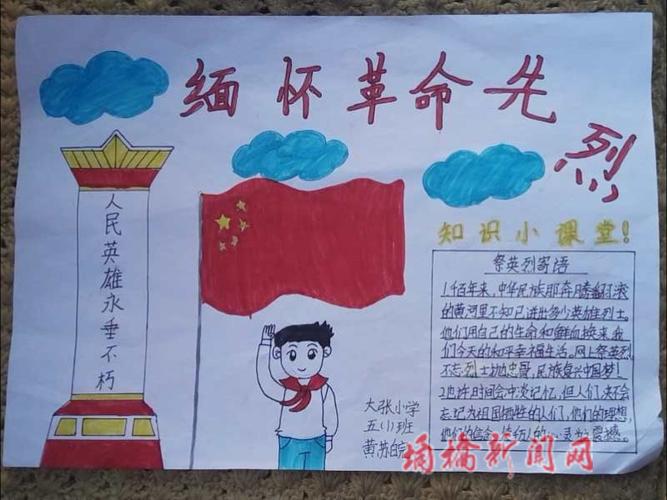 缅怀革命先烈
人民英雄永垂不朽
知识小课堂!
祭英烈寄语
1百年来,中华民族那奔腾翻滚
的黄河里不知已迸出多少英雄烈士。
他们用自己的生命和鲜血换来我
们今天的和平幸福生活。网上祭英烈
不忘烈士
民族复兴中国梦!
2也许时间会冲淡记忆,但人们决不会
忘记为祖国牺牲的人们,他们的理想,
他们的信念,
震撼。
大张小学
五(1)班
黄苏皖
埇桥新闻网